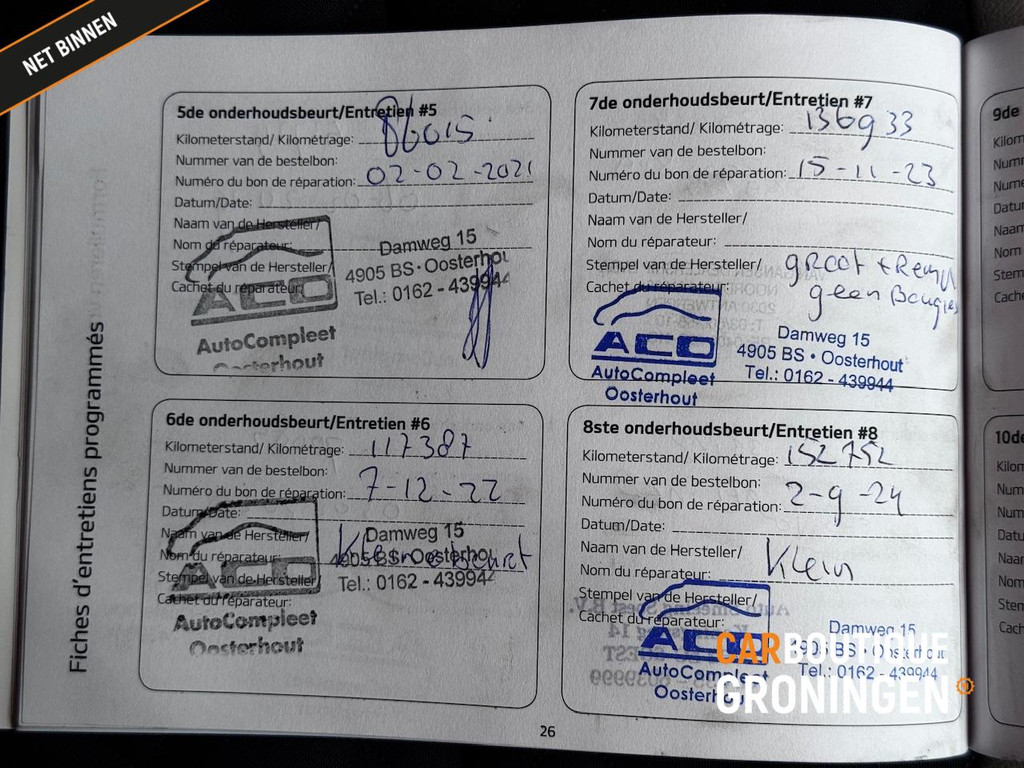 NET BINNEN
Fiches d'entretiens programmés
5de onderhoudsbeurt/Entretien #5
Kilometerstand/ Kilométrage: 86015
Nummer van de bestelbon:
Numéro du bon de réparation: 02-02-2021
Datum/Date:
Naam van de Hersteller/
Nom du réparateur:
Stempel van de Hersteller/
Cachet du réparateur:
ACO
AutoCompleet
Oosterhout
Damweg 15
4905 BS · Oosterhou
Tel.: 0162 - 439944
6de onderhoudsbeurt/Entretien #6
Kilometerstand/ Kilométrage: 117387
Nummer van de bestelbon:
Numéro du bon de réparation: 7-12-22
Datum/Date:
Naam van de Hersteller/
Nom du réparateur:
Stempel van de Hersteller/
Cachet du réparateur:
Kleine Beurt
ACO
AutoCompleet
Oosterhout
Damweg 15
4905 BS · Oosterhou
Tel.: 0162 - 439944
7de onderhoudsbeurt/Entretien #7
Kilometerstand/ Kilométrage: 136933
Nummer van de bestelbon:
Numéro du bon de réparation: 15-11-23
Datum/Date:
Naam van de Hersteller/
Nom du réparateur:
Stempel van de Hersteller/
Cachet du réparateur:
groot + Remvl
geen Bougies
ACO
AutoCompleet
Oosterhout
Damweg 15
4905 BS · Oosterhout
Tel.: 0162 - 439944
8ste onderhoudsbeurt/Entretien #8
Kilometerstand/ Kilométrage: 152752
Nummer van de bestelbon:
Numéro du bon de réparation: 2-9-24
Datum/Date:
Naam van de Hersteller/
Nom du réparateur:
Klein
Stempel van de Hersteller/
Cachet du réparateur:
ACO
AutoCompleet
Oosterhou
Damweg 15
4905 BS · Oosterhout
Tel.: 0162 - 439944
CARBOUTIQUE
GRONINGEN
26
9de
10de